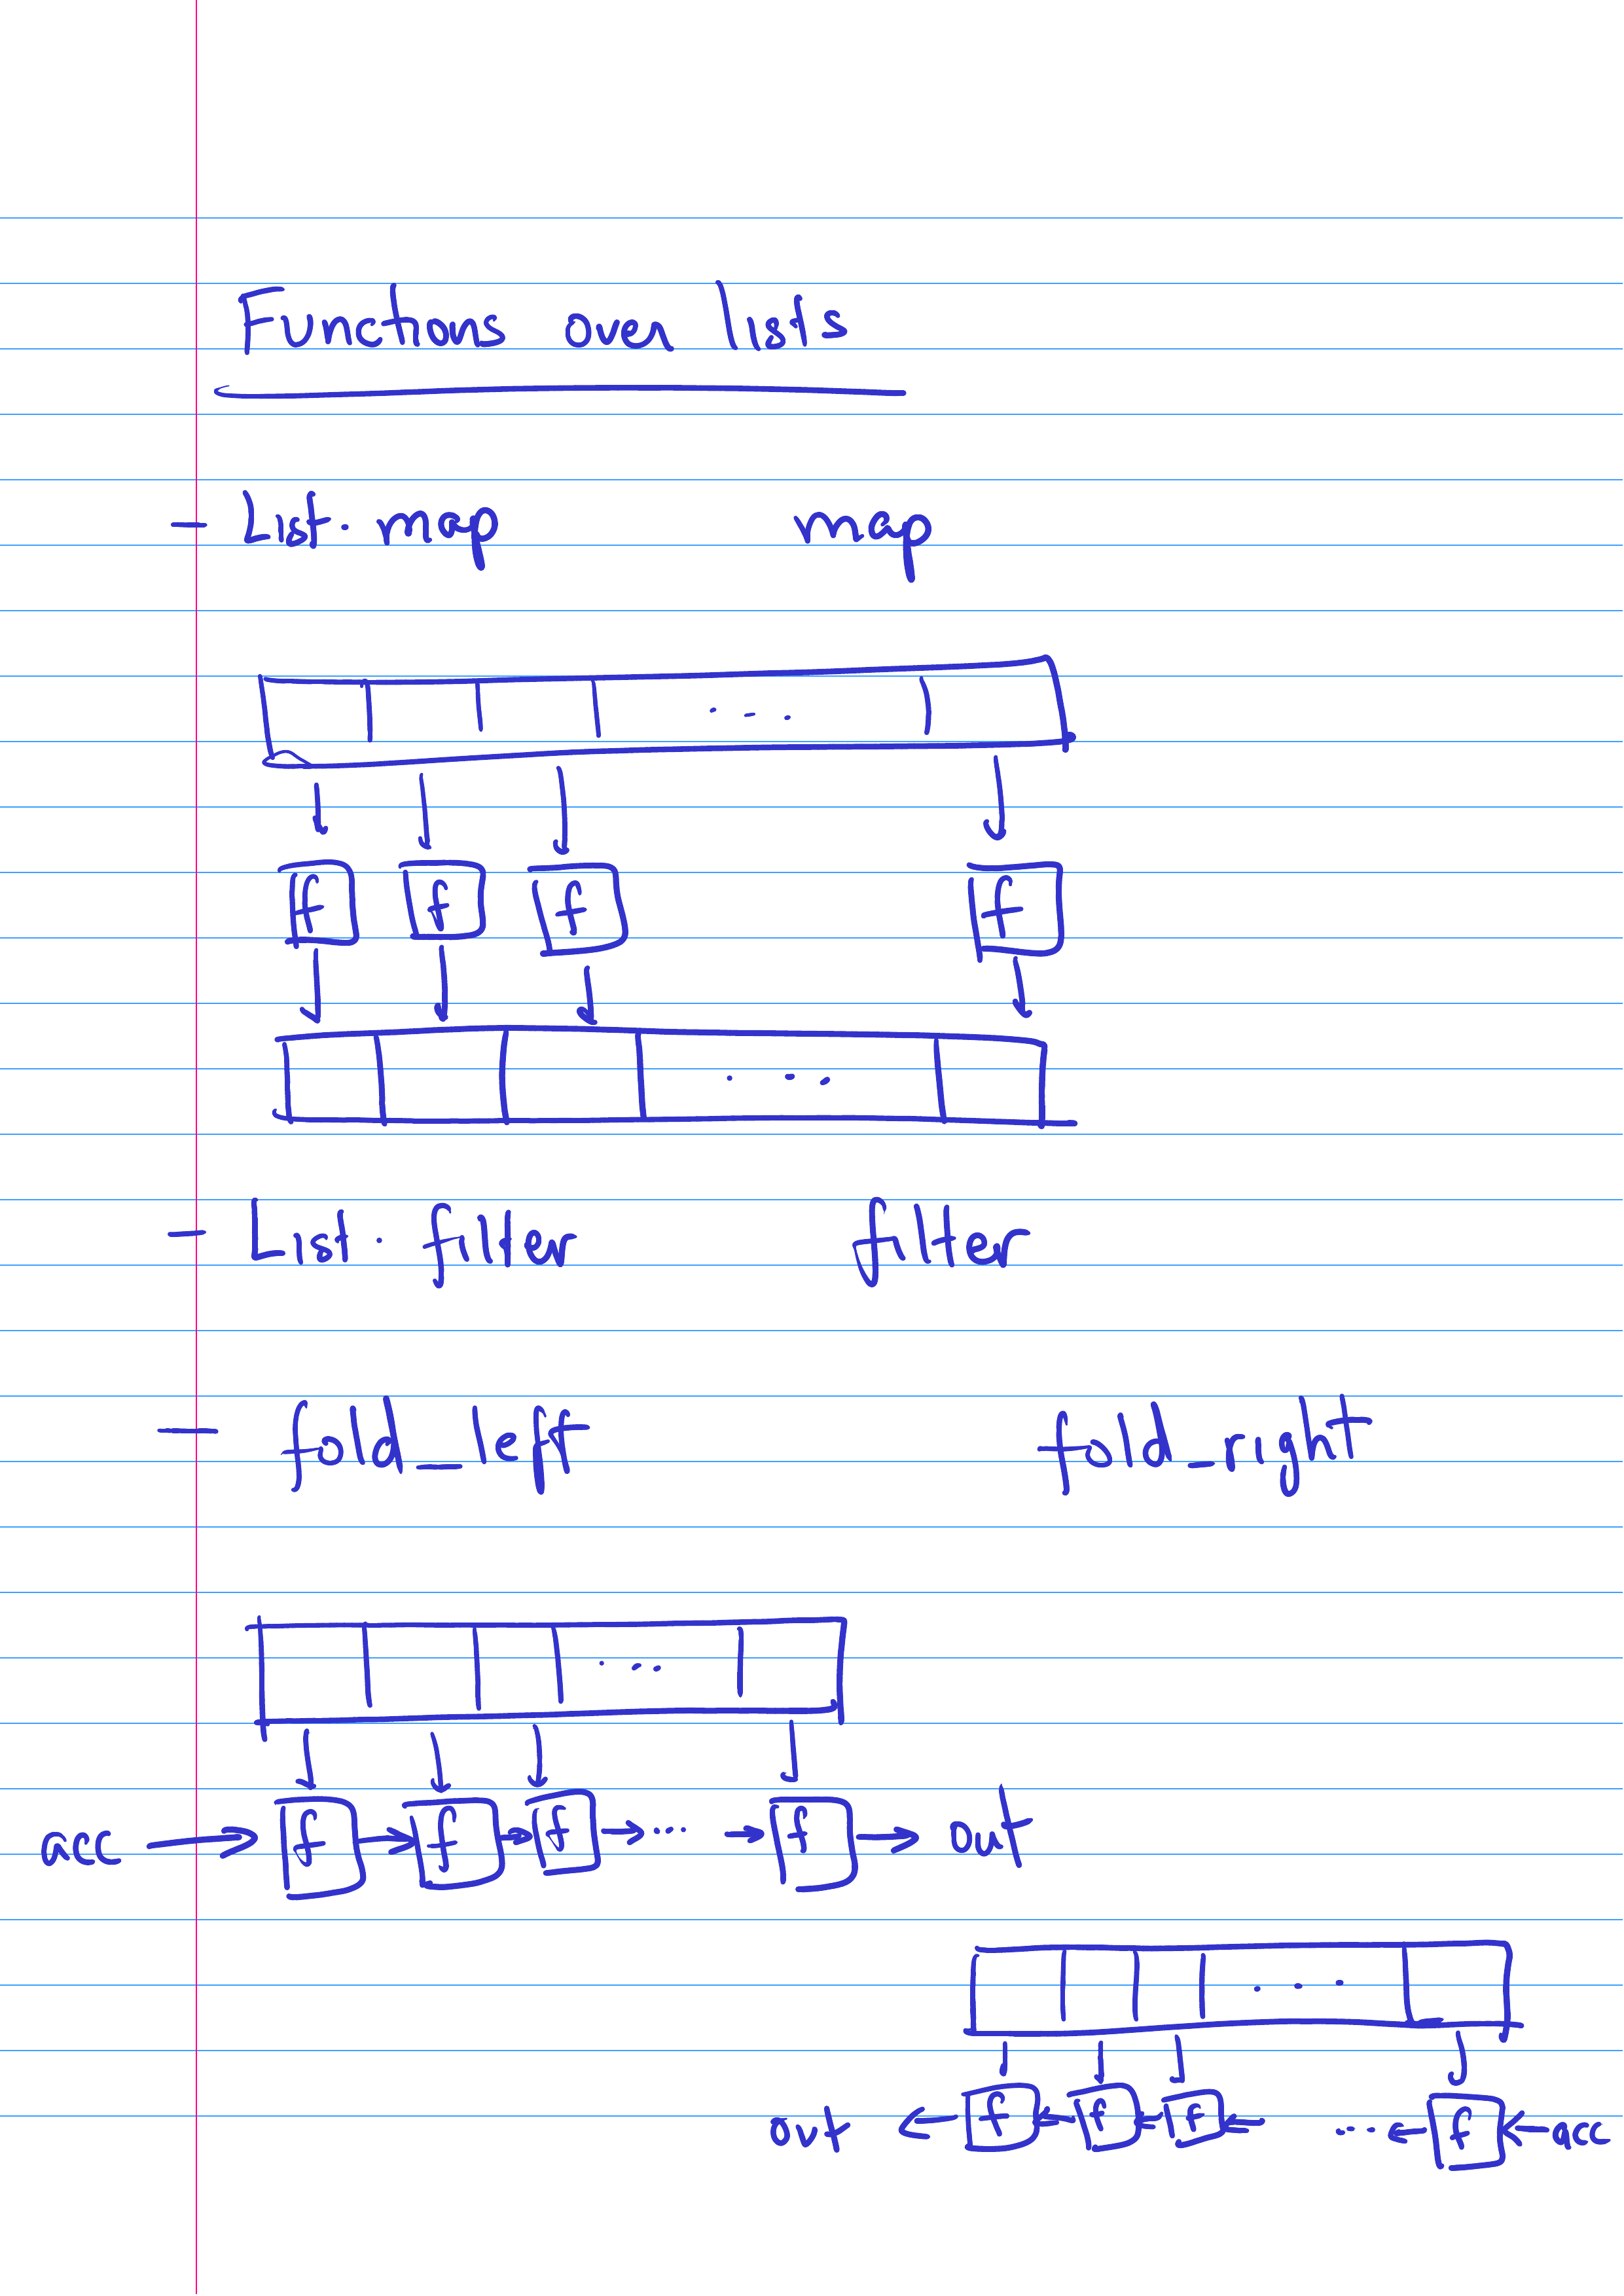 Functions over lists
- List.map map
...
f f f f
...
- List.filter filter
- fold_left fold_right
...
acc → f → f → f → ... → f → out
...
out ← f ← f ← f ← ... ← f ← acc